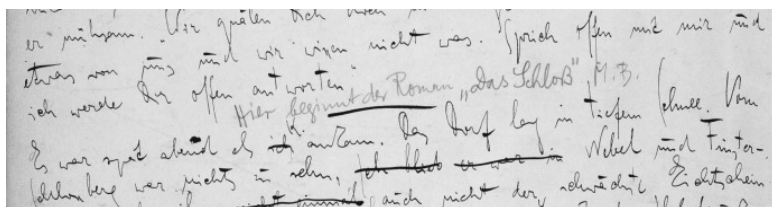 er mühsam. Wir quälen Dich durch
etwas von uns und wir wissen nicht was. Sprich offen mit mir und
ich werde Dir offen antworten"
Hier beginnt der Roman „Das Schloß". M.B.
Es war spät abend als ich ankam. Das Dorf lag in tiefem Schnee. Vom
Schlossberg war nichts zu sehn, ich blieb er war in Nebel und Finster-
nicht einmal auch nicht der schwächste Lichtschein